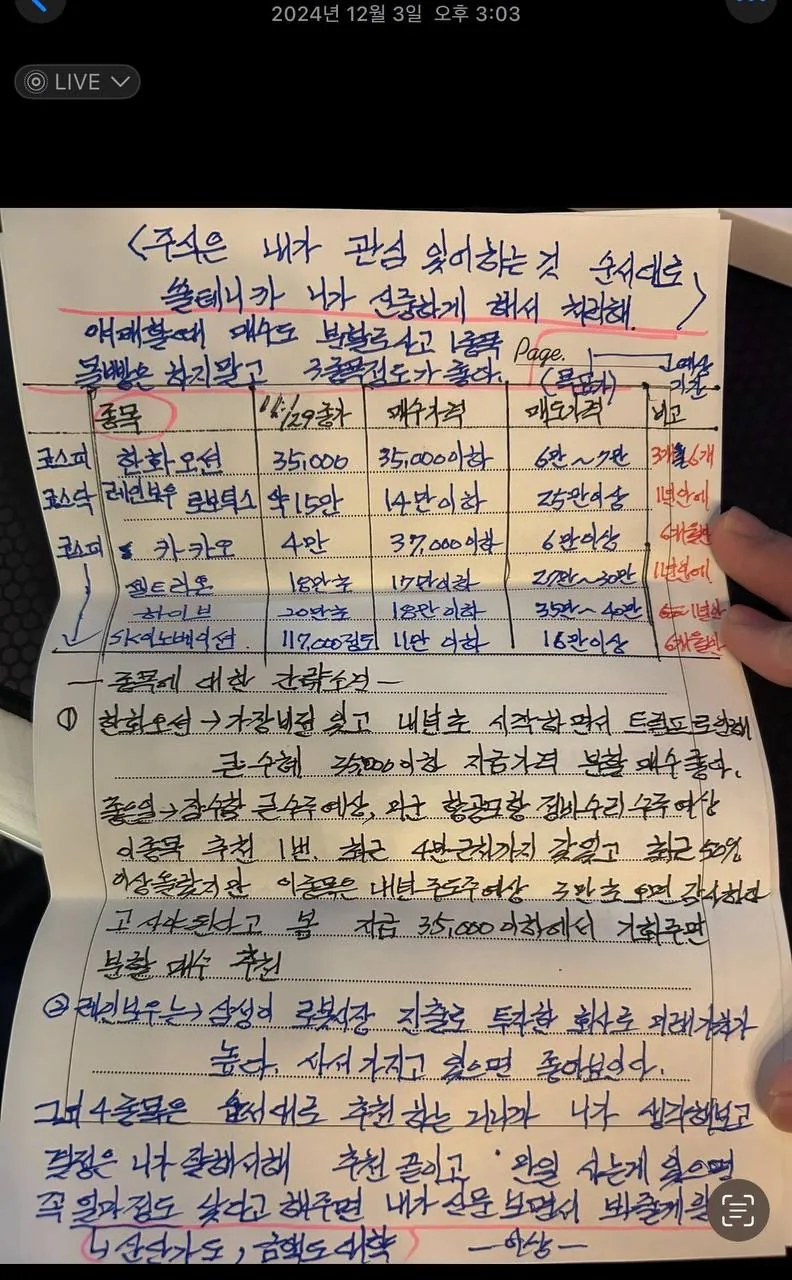 2024년 12월 3일 오후 3:03
LIVE
<주식은 내가 관심 있어하는것 순서대로
쓸테니까 니가 신중하게 해서 처리해.>
매매할때 매수도 분할로 사고 1종목
몰빵은 하지말고 3종목정도가 좋다.
Page.
(목표가)
예상
기간
종목 11/29종가 매수가격 매도가격 비고
코스피 한화오션 35,000 35,000이하 6만~7만 3개월 6개
코스닥 레인보우 로보틱스 약15만 14만이하 25만이상 1년안에
코스피 카카오 4만 37,000이하 6만이상 6개월안
셀트리온 18만초 17만이하 27만~30만 1년안에
하이브 20만초 18만이하 35만~40만 6~1년안
SK이노베이션. 117,000정도 11만이하 16만이상 6개월안
— 종목에 대한 간략수익 —
① 한화오션 → 가장비젼 있고 내년초 시작하면서 트럼프로인해
큰수혜 35,000이하 지금가격 분할 매수좋다.
좋은일→잠수함 큰수주예상, 미군 항공모함 정비수리 수주예상
이종목 추천 1번. 최근 4만근처까지 갔었고 최근 50%
이상올랐지만 이종목은 내년주도주예상 3만초 오면 감사하다
고 사야된다고 봄 지금 35,000이하에서 기회주면
분할 매수 추천
② 레인보우는→삼성이 로봇시장 진출로 투자한 회사로 미래가치가
높다. 사서 가지고 있으면 좋아보인다.
그외 4종목은 순서대로 추천하는거니까 니가 생각해보고
결정은 니가 잘해서해 추천 끝이고 만일 사는게 있으면
꼭 얼마정도 샀다고 해주면 내가 신문보면서 봐줄게
니 산단가도, 금액도 대략 — 이상 —